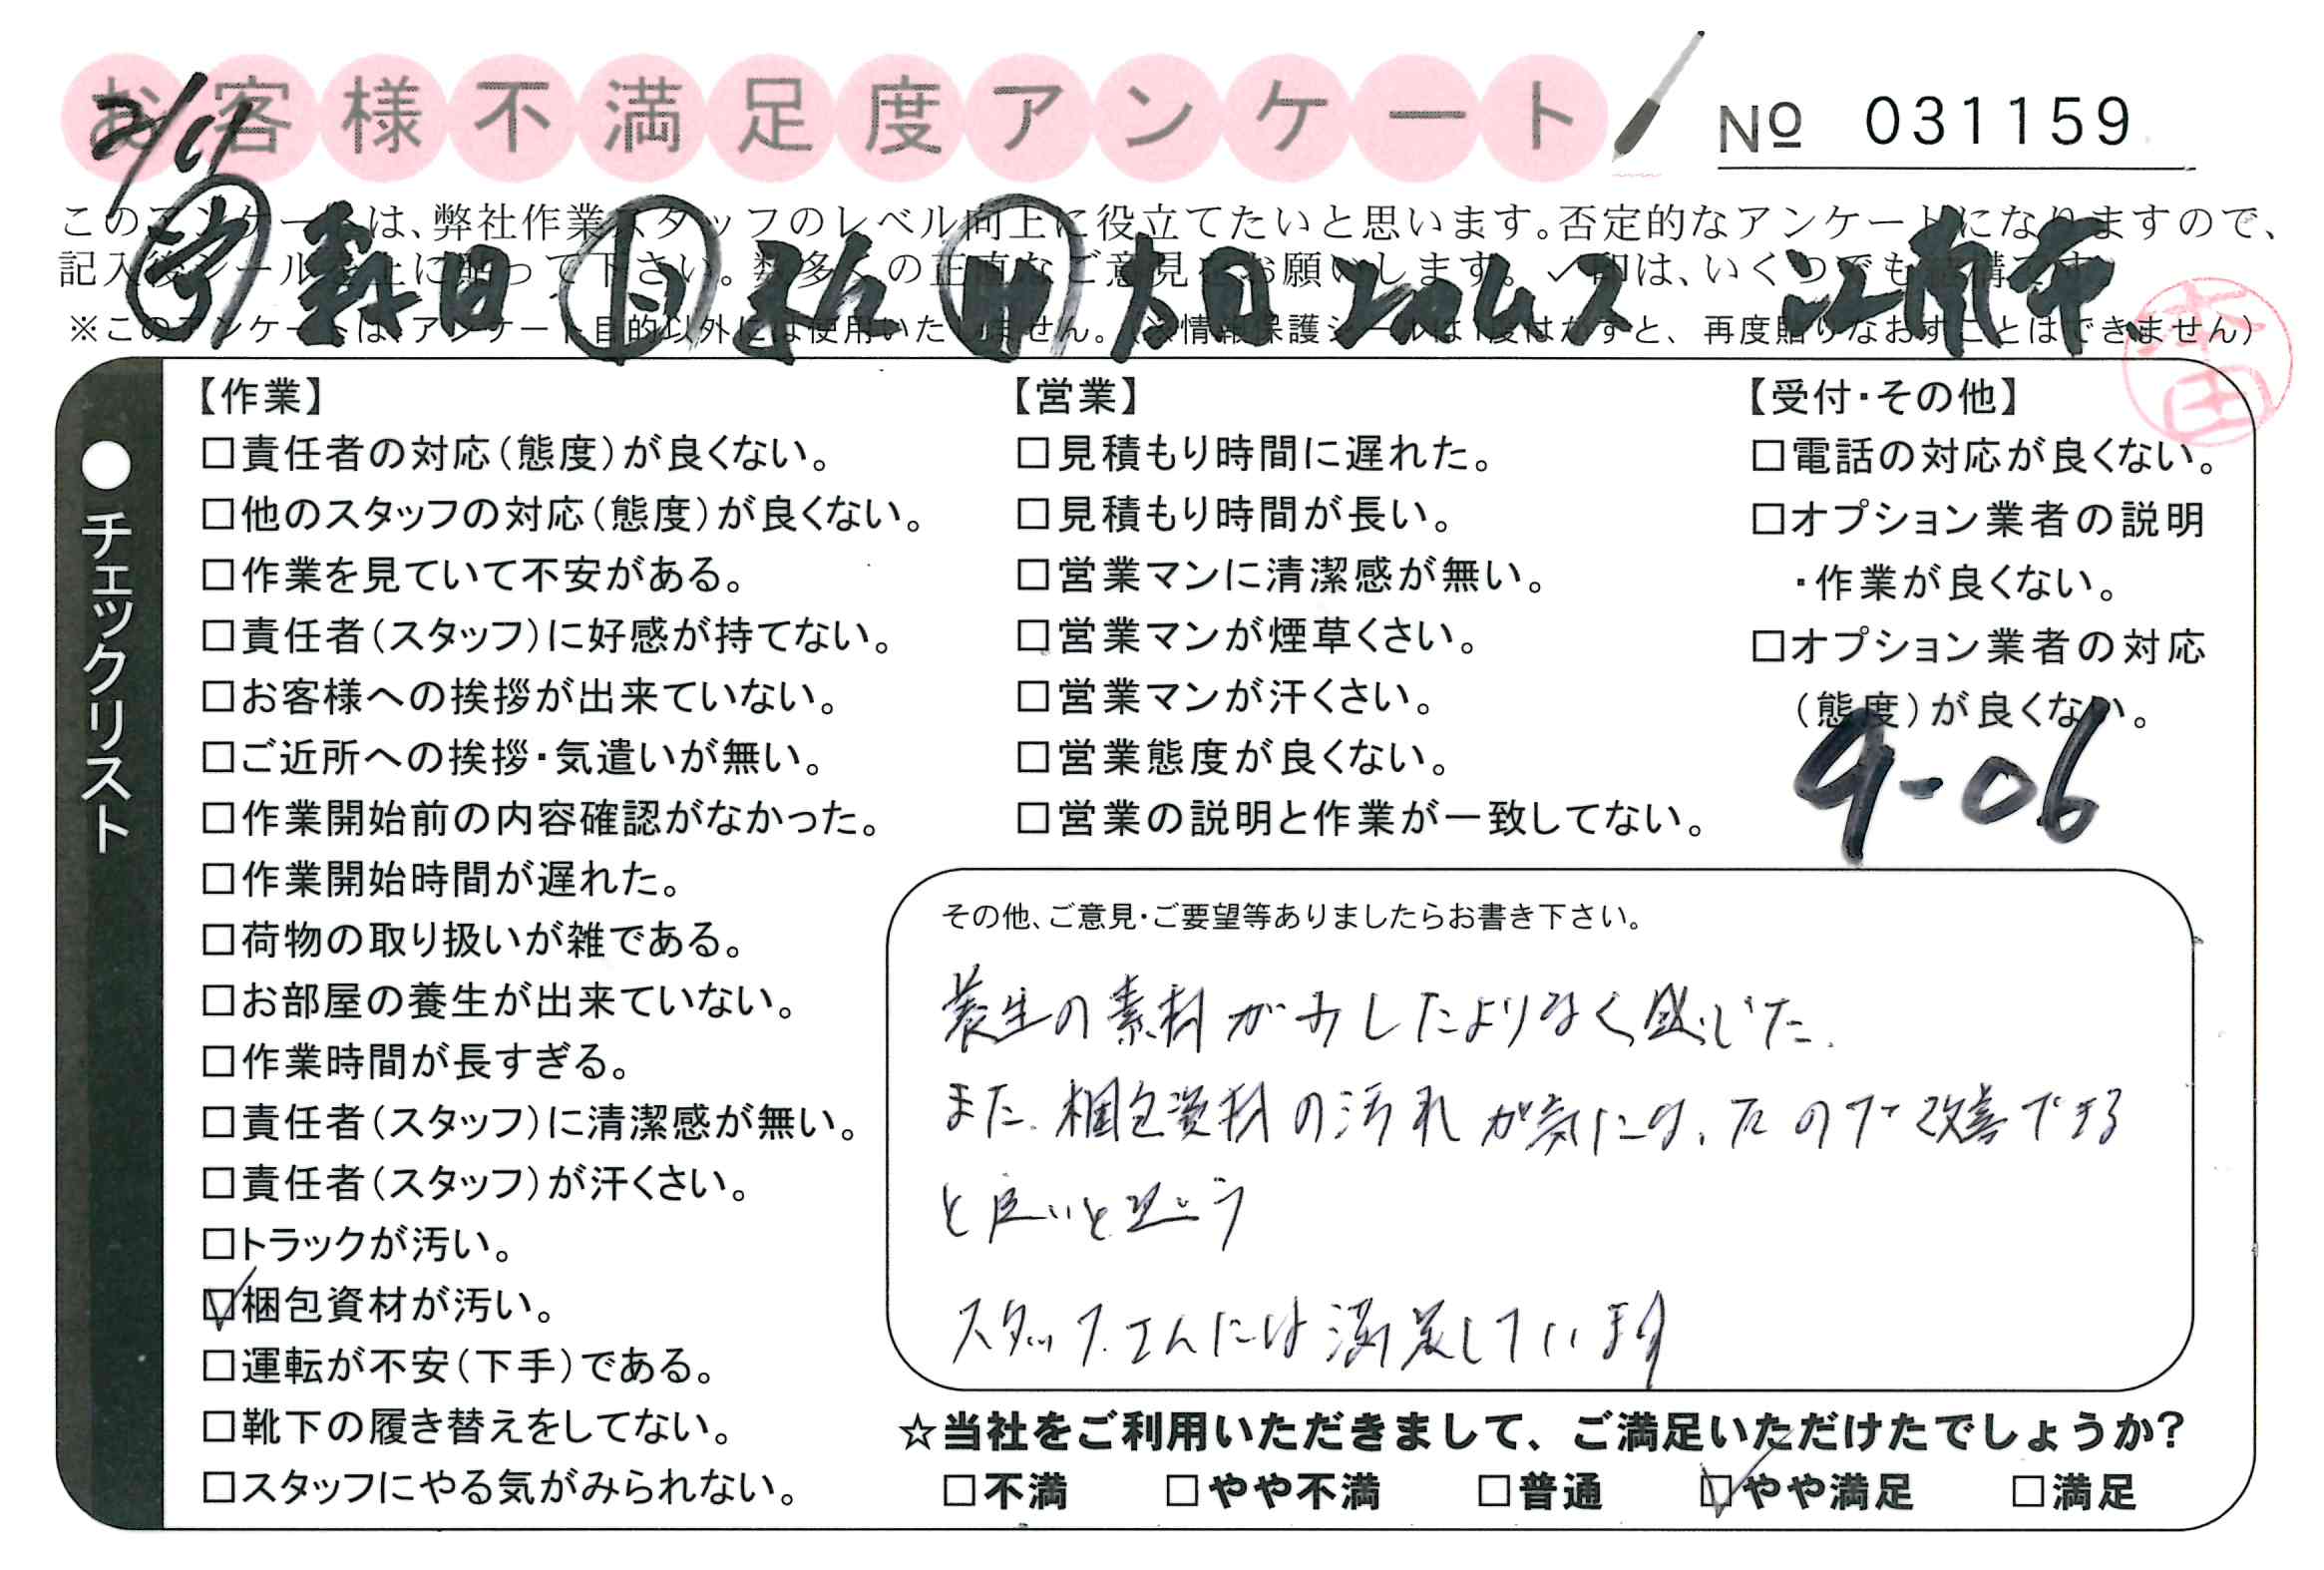 お客様不満足度アンケート
№ 031159
2/11
このアンケートは、弊社作業スタッフのレベル向上に役立てたいと思います。否定的なアンケートになりますので、
記入後シールを上に貼って下さい。数多くの正直なご意見をお願いします。✓印は、いくつでも結構です。
森田 大日 江南市
※このアンケートは、アンケート目的以外には使用いたしません。(※情報保護シールは1度はがすと、再度貼りなおすことはできません)
本田
●チェックリスト
【作業】
□責任者の対応(態度)が良くない。
□他のスタッフの対応(態度)が良くない。
□作業を見ていて不安がある。
□責任者(スタッフ)に好感が持てない。
□お客様への挨拶が出来ていない。
□ご近所への挨拶・気遣いが無い。
□作業開始前の内容確認がなかった。
□作業開始時間が遅れた。
□荷物の取り扱いが雑である。
□お部屋の養生が出来ていない。
□作業時間が長すぎる。
□責任者(スタッフ)に清潔感が無い。
□責任者(スタッフ)が汗くさい。
□トラックが汚い。
☑梱包資材が汚い。
□運転が不安(下手)である。
□靴下の履き替えをしてない。
□スタッフにやる気がみられない。
【営業】
□見積もり時間に遅れた。
□見積もり時間が長い。
□営業マンに清潔感が無い。
□営業マンが煙草くさい。
□営業マンが汗くさい。
□営業態度が良くない。
□営業の説明と作業が一致してない。
【受付・その他】
□電話の対応が良くない。
□オプション業者の説明
・作業が良くない。
□オプション業者の対応
(態度)が良くない。
9-06
その他、ご意見・ご要望等ありましたらお書き下さい。
養生の素材が少したよりなく感じた.
また、梱包資材の汚れが気になったので改善できる
と良いと思う
スタッフさんには満足しています
☆当社をご利用いただきまして、ご満足いただけたでしょうか?
□不満 □やや不満 □普通 ☑やや満足 □満足